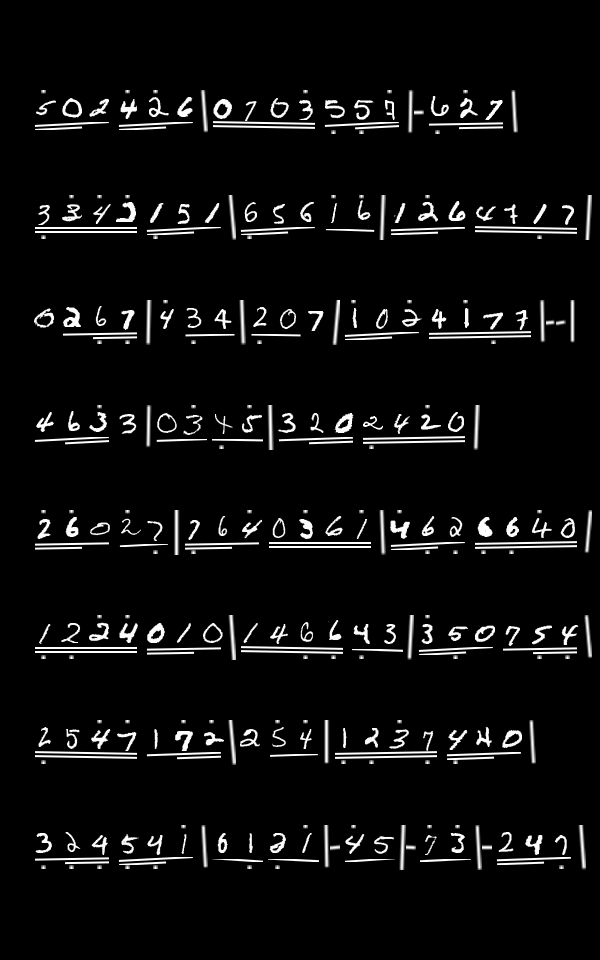 502 426|0703 557|-627
3343 151|656 16|126 4717
0267|4 34 4|207|102 4177|--
463 3|03 45|320 2420
260 27|764 0361|462 6640
1224 010|1466 43|350 754
2547 172|2 54|1237 440
324 541|61 21|-45|-73|-247